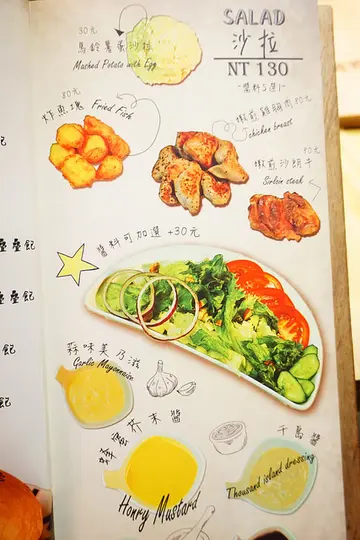 SALAD
沙拉
NT 130
30元
馬鈴薯蛋沙拉
Mashed Potato with Egg
80元
炸魚塊
Fried Fish
嫩煎雞胸肉 80元
Chicken breast
嫩煎沙朗牛
Sirloin steak
醬料可加選 +30元
蒜味美乃滋
Garlic Mayonnaise
蜂蜜芥末醬
Honry Mustard
千島醬
Thousand island dressing
飽
飽
飽